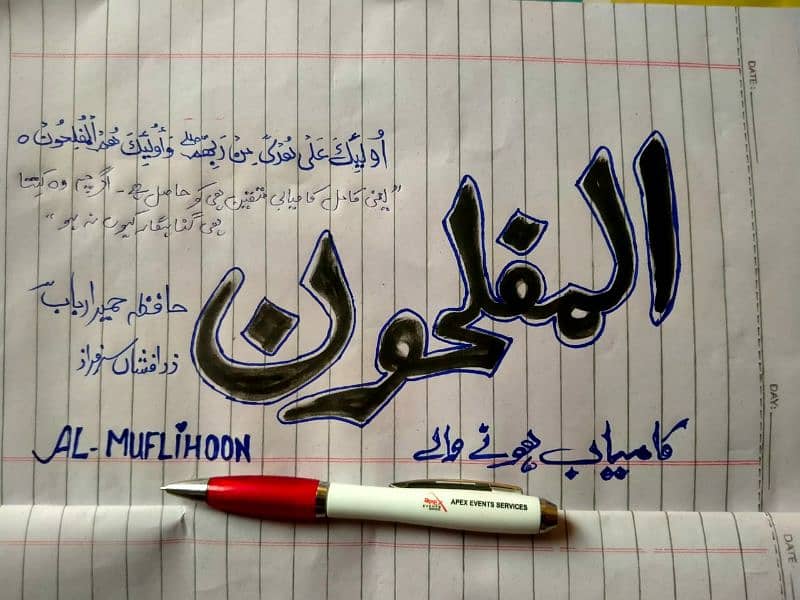 اُولٰٓئِكَ عَلٰى هُدًى مِنْ رَبِّهِمْ وَ أُولٰٓئِكَ هُمُ الْمُفْلِحُوْنَ ○
"یعنی کامل کامیابی متقین ہی کو حاصل ہے۔ اگرچہ وہ کیسا
ہی گناہگار کیوں نہ ہو"
المفلحون
حافظہ حمیرا رباب
زرافشاں سرفراز
AL-MUFLIHOON
کامیاب ہونے والے
apex
EVENTS
APEX EVENTS SERVICES
DATE:
DAY:
DATE